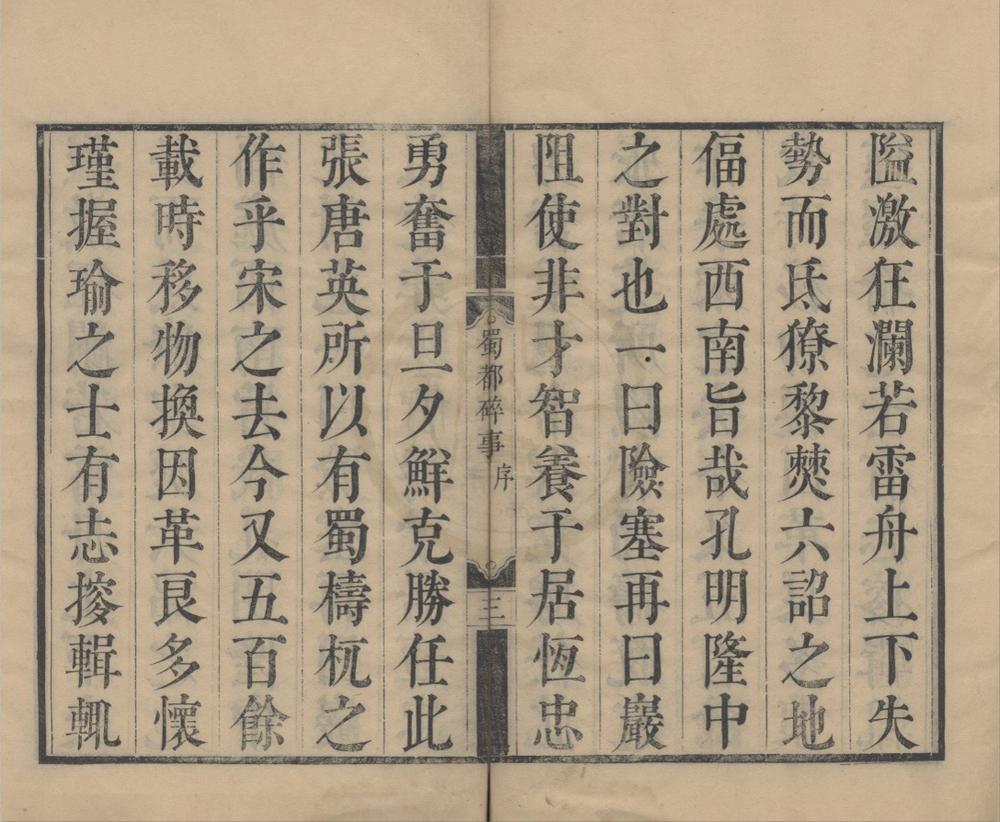 隘激狂瀾若雷舟上下失
勢而氐獠黎僰六詔之地
偪處西南旨哉孔明隆中
之對也一曰險塞再曰巖
阻使非才智養于居恆忠
蜀都碎事 序 三
勇奮于旦夕鮮克勝任此
張唐英所以有蜀檮杌之
作乎宋之去今又五百餘
載時移物換因革良多懷
瑾握瑜之士有志搜輯輒